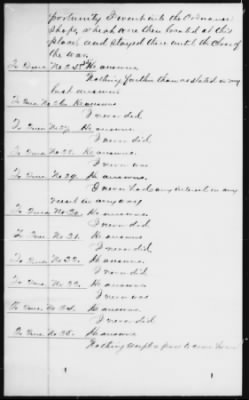 portunity I went into the Ordnance
Shops, which were then located at this
place, and stayed there until the close of
the war.
To Ques. No. 25th He answers
Nothing further than as stated in my
last answer.
To Ques. No. 26. He answers
I never did
To Ques. No. 27. He answers
I never did
To Ques. No. 28. He answers
I never was
To Ques. No. 29. He answers.
I never had any interest in any
vessel in any way
To Ques. No. 30. He answers.
I never did
To Ques. No. 31. He answers
I never did
To Ques. No. 32. He answers.
I never did.
To Ques. No. 33. He answers
I never was
To Ques. No. 34. He answers.
I never did.
To Ques. No. 35. He answers
Nothing except a pass to come home